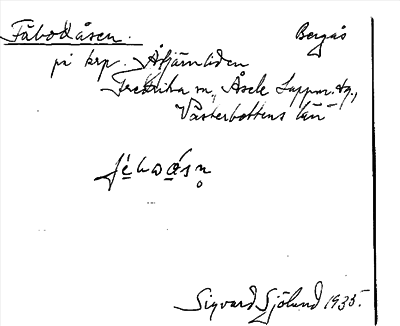 Fäbodåsen. Bergås
på krp. Åtjärnliden
Fredrika sn, Åsele Lappm. tg.,
Västerbottens län
Sigvard Sjölund 1935.